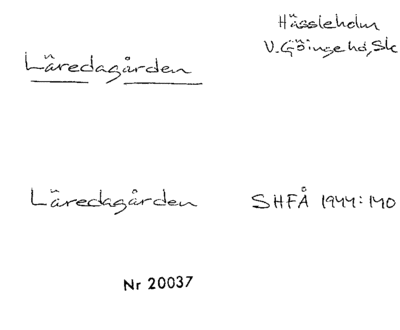 Hässleholm
Läredagården
V. Göinge hd, Sk
Läredagården
SHFÅ 1944:140
Nr 20037